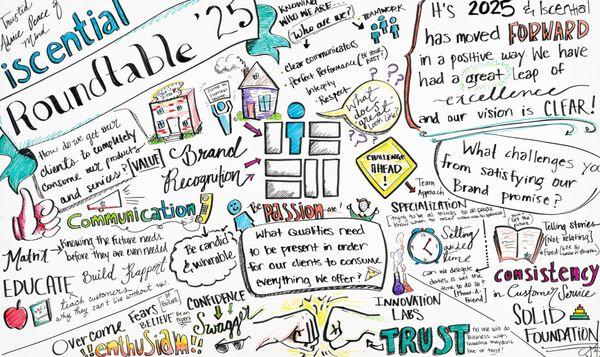 Trusted
Advice Peace of
Mind
iscential
Roundtable '25
KNOWING
WHO WE ARE...
(Who are we?)
TEAMWORK
- clear communicators
- Perfect Performance
Integrity
Respect
What
does
great
look like?
It's 2025 & Iscential
has moved FORWARD
in a positive way We have
had a great leap of
excellence
and our vision is CLEAR!
How do we get our
clients to completely
consume our products
and services?
VALUE
Brand
Recognition
CHALLENGE
AHEAD!
Team
Approach
What challenges you
from satisfying our
Brand promise?
Communication
Knowing the future needs
before they are even needed
Build Rapport
EDUCATE
teach customers
why they can't live without us
Be candid
& vulnerable
Be PASSIONate!
What Qualities need
to be present in order
for our clients to consume
everything we offer?
SPECIALIZATION
Trying to be all things to all people
Setting
aside
time
Can we delegate
Telling stories
(Not Relating)
consistency
in Customer Service
INNOVATION
LABS
SOLID
FOUNDATION
Overcome Fears
Failure
BELIEVE
enthusiasm!!
CONFIDENCE
Swagger
TRUST
no one will do
business with
someone they don't
like or trust!